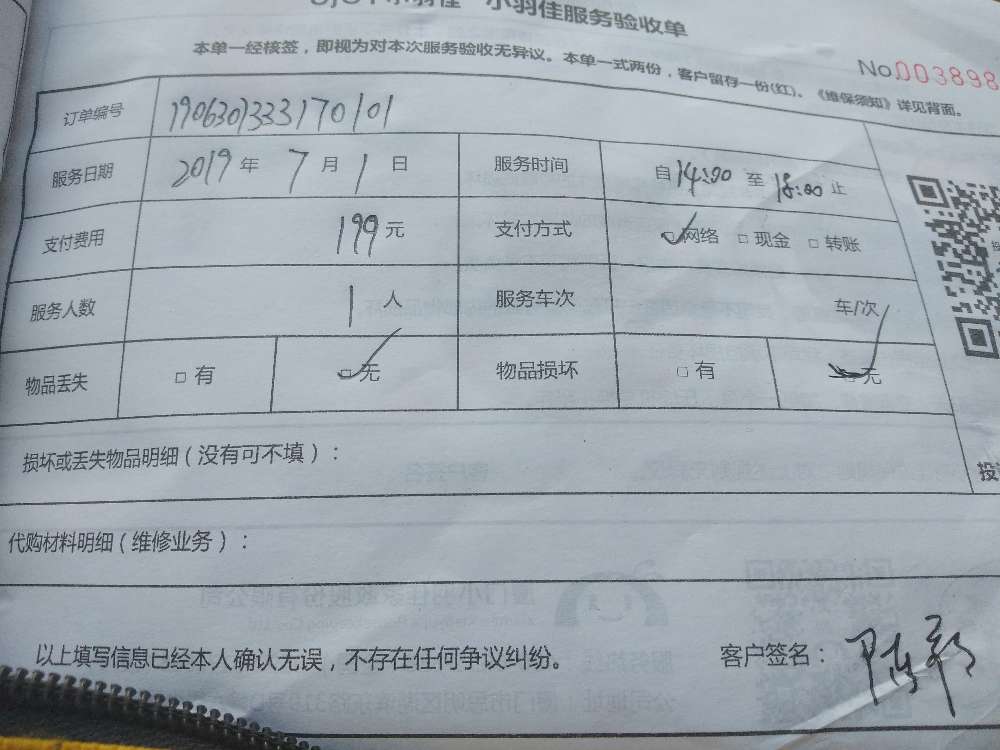 小羽佳服务验收单
本单一经核签，即视为对本次服务验收无异议。本单一式两份，客户留存一份(红)。《维保须知》详见背面。
No.003898
订单编号 19063013331170101
服务日期 2019 年 7 月 1 日 服务时间 自 14:00 至 18:00 止
支付费用 199 元 支付方式 ☑网络 □现金 □转账
服务人数 1 人 服务车次 车/次
物品丢失 □有 ☑无 物品损坏 □有 ☑无
损坏或丢失物品明细（没有可不填）：
代购材料明细（维修业务）：
以上填写信息已经本人确认无误，不存在任何争议纠纷。 客户签名：